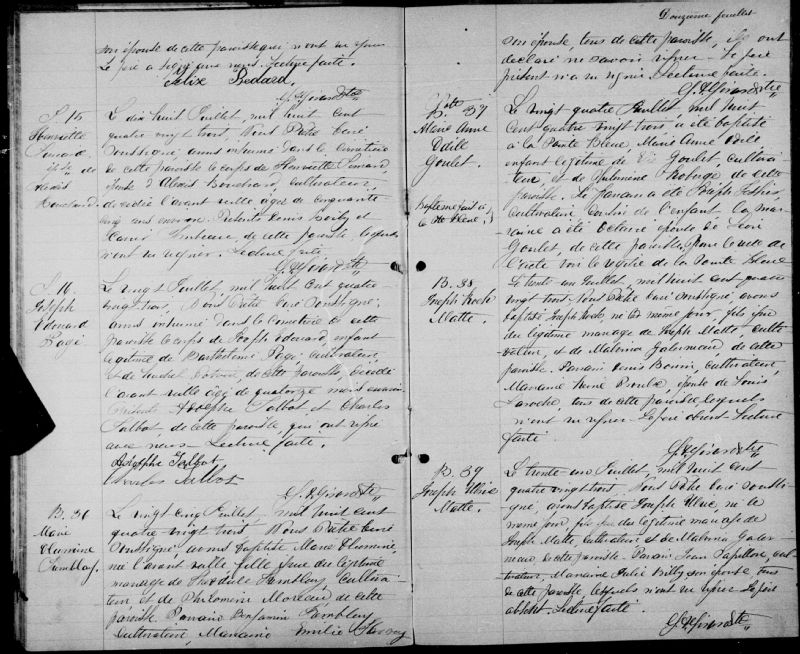 son épouse de cette paroisse qui n'ont su signer
Le père a signé avec nous. Lecture faite.
Felix Bedard.
S. 15
Henriette
Simard
épse de
Alexis
Bouchard
Le dix huit Juillet, mil huit cent
quatre vingt trois, Nous Prêtre Curé
soussigné, avons inhumé dans le cimetière
de cette paroisse le corps de Henriette Simard,
épouse d'Alexis Bouchard, cultivateur,
décédée l'avant veille âgée de cinquante
cinq ans environ. Présents Denis
et
de cette paroisse, lesquels
n'ont su signer. Lecture faite.
S. 16.
Joseph
Edouard
Pagé
Le vingt Juillet, mil huit cent quatre
vingt trois, Nous Prêtre Curé soussigné,
avons inhumé dans le cimetière de cette
paroisse le corps de Joseph Edouard, enfant
légitime de Barthélemi Pagé cultivateur,
et de de cette paroisse, décédé
l'avant veille âgé de quatorze mois environ
Présents Adolphe Talbot et Charles
Talbot, de cette paroisse, qui ont signé
avec nous Lecture faite.
Adolphe Talbot
Charles Talbot
B. 36
Marie
Philomène
Tremblay
Le vingt cinq Juillet mil huit cent
quatre vingt trois Nous Prêtre Curé
soussigné, avons baptisé Marie Philomène,
née l'avant veille fille du légitime
mariage de Théodule Tremblay, Cultiva
teur et de Philomène Moreau, de cette
paroisse Parrain Benjamin Tremblay
Cultivateur, Marraine Emilie
Douzième feuillet
son épouse, tous de cette paroisse, ils ont
déclaré ne savoir signer. Le père
présent n'a su signer Lecture faite.
B. 37
Marie Anne
Odile
Goulet.
Baptême fait à
la Pte Bleue.
Le vingt quatre Juillet, mil huit
cent quatre vingt trois, a été baptisé
à la Pointe Bleue, Marie Anne Odile
enfant légitime de Goulet, cultiva
teur, et de de cette
paroisse. Le parrain a été Joseph
cultivateur, cousin de l'enfant la mar
raine a été épouse de
Goulet, de cette paroisse, Pour le reste de
l'acte voir le registre de la Pointe Bleue
B. 38
Joseph
Matte.
Le trente un Juillet, mil huit cent quatre
vingt trois Nous Prêtre Curé soussigné, avons
baptisé Joseph né le même jour, fils issu
du légitime mariage de Joseph Matte, culti
vateur, et de Malvina Galerneau, de cette
paroisse. Parrain Denis cultivateur,
Marraine épouse de Louis
Laroche, tous de cette paroisse lesquels
n'ont su signer Le père absent Lecture
faite
B. 39
Joseph Ulric
Matte.
Le trente un Juillet, mil huit cent
quatre vingt trois, Nous Prêtre Curé soussi
gné, avons baptisé Joseph Ulric, né le
même jour fils du légitime mariage de
Joseph Matte, cultivateur et de Malvina Galer
neau de cette paroisse Parrain Jean Papillon, cul
tivateur, Marraine Julie son épouse tous
de cette paroisse, lesquels n'ont su signer Le père
absent. Lecture faite.